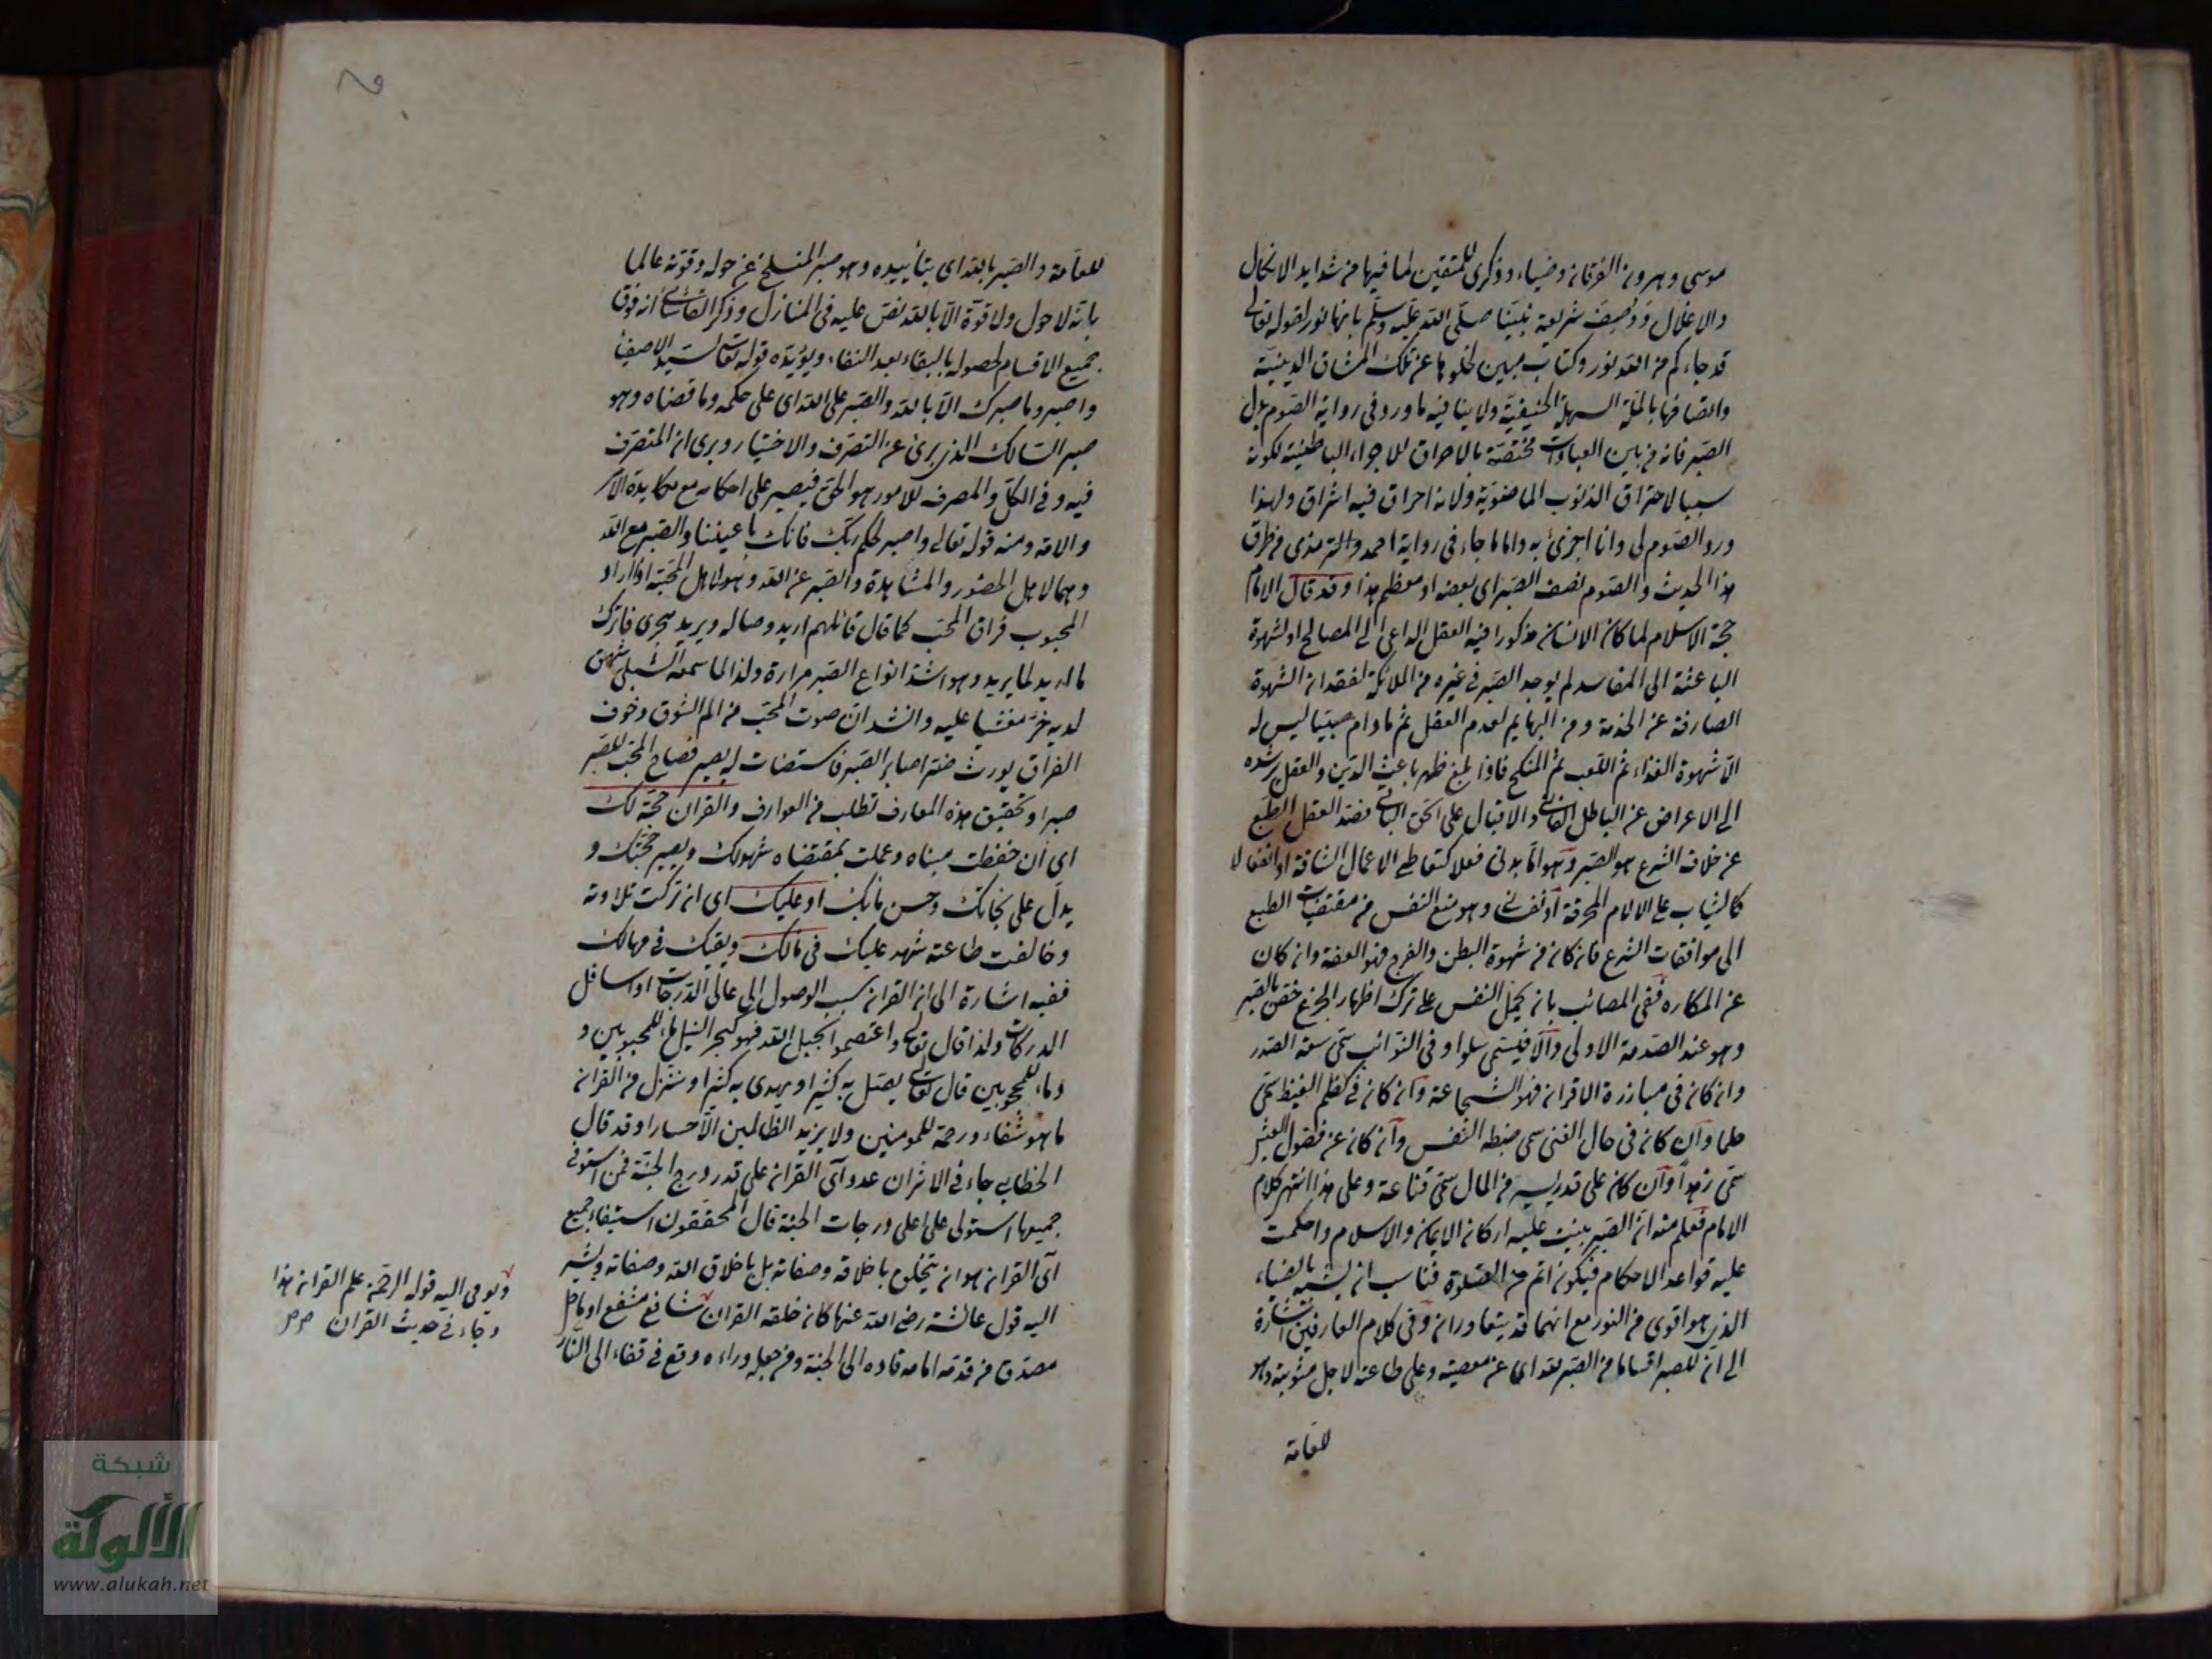 موسى وهرون الفرقان وضياء وذكرى للمتقين لما فيها من شدايد الانكال
والاغلال ووصف شريعة نبينا صلى الله عليه وسلم بانها نور لقوله تعالى
قد جاءكم من الله نور وكتاب مبين لخلوها عن تلك المشاق الدينية
واتصافها بالملة السهلة الحنيفية ولا ينافيه ما ورد في رواية الصوم بدل
الصبر فانه من بين العبادات مختصة بالاحراق للاجزاء الباطنية لكونه
سببا لاحتراق الذنوب الماضوية ولانه احراق فيه اشراق ولهذا
ورد الصوم لي وانا اجزئ به واما ما جاء في رواية احمد والترمذى من طرق
هذا الحديث والصوم نصف الصبر اى بعضه او معظم هذا وقد قال الامام
حجة الاسلام لما كان الانسان مذكورا فيه العقل الداعي الى المصالح او لشهوة
الباعثة الى المفاسد لم يوجد الصبر في غيره من الملائكة لفقدان الشهوة
الصارفة عن الخدمة ومن البهايم لعدم العقل ثم مادام صبيا ليس له
الا شهوة الغذاء ثم اللعب ثم المنكح فاذا بلغ ظهر باعث الدين والعقل يرشده
الى الاعراض عن الباطل الفاني والاقبال على الحق الباقي فضد العقل الطبع
عن خلاف الشرع هو الصبر وهو اما بدنى فعلا كتعاطي الاعمال الشاقة او انفعالا
كالثبات على الالام المحرقة او نفساني وهو منع النفس من مقتضيات الطبع
الى موافقات الشرع فان كان من شهوة البطن والفرج فهو العفة وان كان
عن المكاره ففى المصائب بان يحمل النفس على ترك اظهار الجزع خص بالصبر
وهو عند الصدمة الاولى والا فيسمى سلوا وفى النوائب سمى سعة الصدر
وان كان فى مبارزة الاقران فهو الشجاعة وان كان فى كظم الغيظ سمى
حلما وان كان فى حال الغنى سمى ضبط النفس وان كان عن فضول العيش
سمى زهدا وان كان على قدر يسير من المال سمى قناعة وعلى هذا انتهى كلام
الامام فعلم منه ان الصبر بنيت عليه اركان الايمان والاسلام واحكمت
عليه قواعد الاحكام فيكون اتم من الصلوة فناسب ان يشبه بالضياء
الذى هو اقوى من النور مع انهما قد يتعاوران وفى كلام العارفين اشارة
الى ان للصبر اقساما من الصبر لله اى عن معصيته وعلى طاعته لاجل مثوبته وهو
للعامة
للعامة والصبر بالله اى بتأييده وهو صبر المنسلخ عن حوله وقوته عالما
بانه لا حول ولا قوة الا بالله نص عليه في المنازل وذكر القاشاني انه فوق
جميع الاقسام لحصوله بالبقاء بعد الفناء ويؤيده قوله تعالى لسيد الاصفياء
واصبر وما صبرك الا بالله والصبر على الله اى على حكمه وما قضاه وهو
صبر السالك الذى برئ عن التصرف والاختيار ويرى ان المتصرف
فيه وفى الكل والمصرف للامور هو الحق فيصبر على احكامه مع مكابدة الامر
والامه ومنه قوله تعالى واصبر لحكم ربك فانك باعيننا والصبر مع الله
وهما لاهل الحضور والمشاهدة والصبر عن الله وهو لاهل المحبة اذا اراد
المحبوب فراق المحب كما قال قائلهم اريد وصاله ويريد هجرى فاترك
ما اريد لما يريد وهو اشد انواع الصبر مرارة ولذا لما سمعه الشبلى شهق
لديه خر مغشيا عليه وانشد ان صوت المحب من الم الشوق وخوف
الفراق يورث ضرا صابر الصبر فاستغاث به الصبر فصاح المحب للصبر
صبرا وتحقيق هذه المعارف تطلب من العوارف والقران حجة لك
اى ان حفظت مبناه وعملت بمقتضاه شهد لك ويصير حجتك و
يدل على نجاتك وحسن مابك او عليك اى ان تركت تلاوته
وخالفت طاعته شهد عليك فى مالك ويقيك فى مهالك
ففيه اشارة الى ان القران سبب الوصول الى عالى الدرجات او اسافل
الدركات ولذا قال تعالى واعتصموا بحبل الله فهو كبحر النيل ماء للمحبوبين و
دماء للمحجوبين قال تعالى يضل به كثيرا ويهدى به كثيرا وننزل من القران
ما هو شفاء ورحمة للمومنين ولا يزيد الظالمين الا خسارا وقد قال
الخطابي جاء في الاثر ان عدد آى القران على قدر درج الجنة فمن استوفى
جميعها استولى على اعلى درجات الجنة قال المحققون استيفاء جميع
آى القران هو ان يتخلق باخلاقه وصفاته بل باخلاق الله وصفاته ويشير
اليه قول عائشة رضى الله عنها كان خلقه القران شافع مشفع او ماحل
مصدق من قدمه امامه قاده الى الجنة ومن جعله وراءه وقع فى قفاه الى النار
ويومى اليه قوله الرحمن علم القران هذا
وجاء فى حديث القران صح صح
شبكة
الألوكة
www.alukah.net